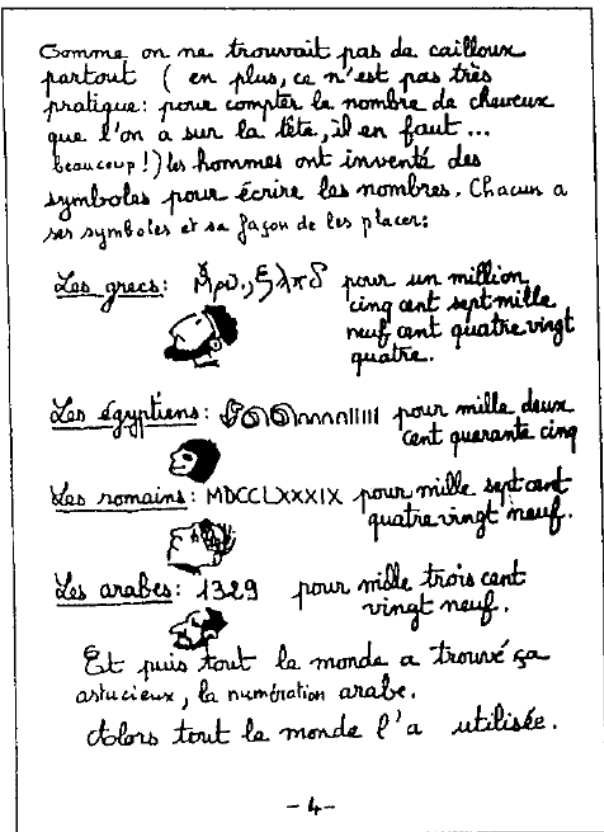 Comme on ne trouvait pas de cailloux
partout ( en plus, ce n'est pas très
pratique: pour compter le nombre de cheveux
que l'on a sur la tête, il en faut...
beaucoup!) les hommes ont inventé des
symboles pour écrire les nombres. Chacun a
ses symboles et sa façon de les placer:
Les grecs: pour un million
cinq cent sept mille
neuf cent quatre vingt
quatre.
Les égyptiens: pour mille deux
cent quarante cinq
Les romains: MDCCLXXXIX pour mille sept cent
quatre vingt neuf.
Les arabes: 1329 pour mille trois cent
vingt neuf.
Et puis tout le monde a trouvé ça
astucieux, la numération arabe.
Alors tout le monde l'a utilisée.
- 4 -